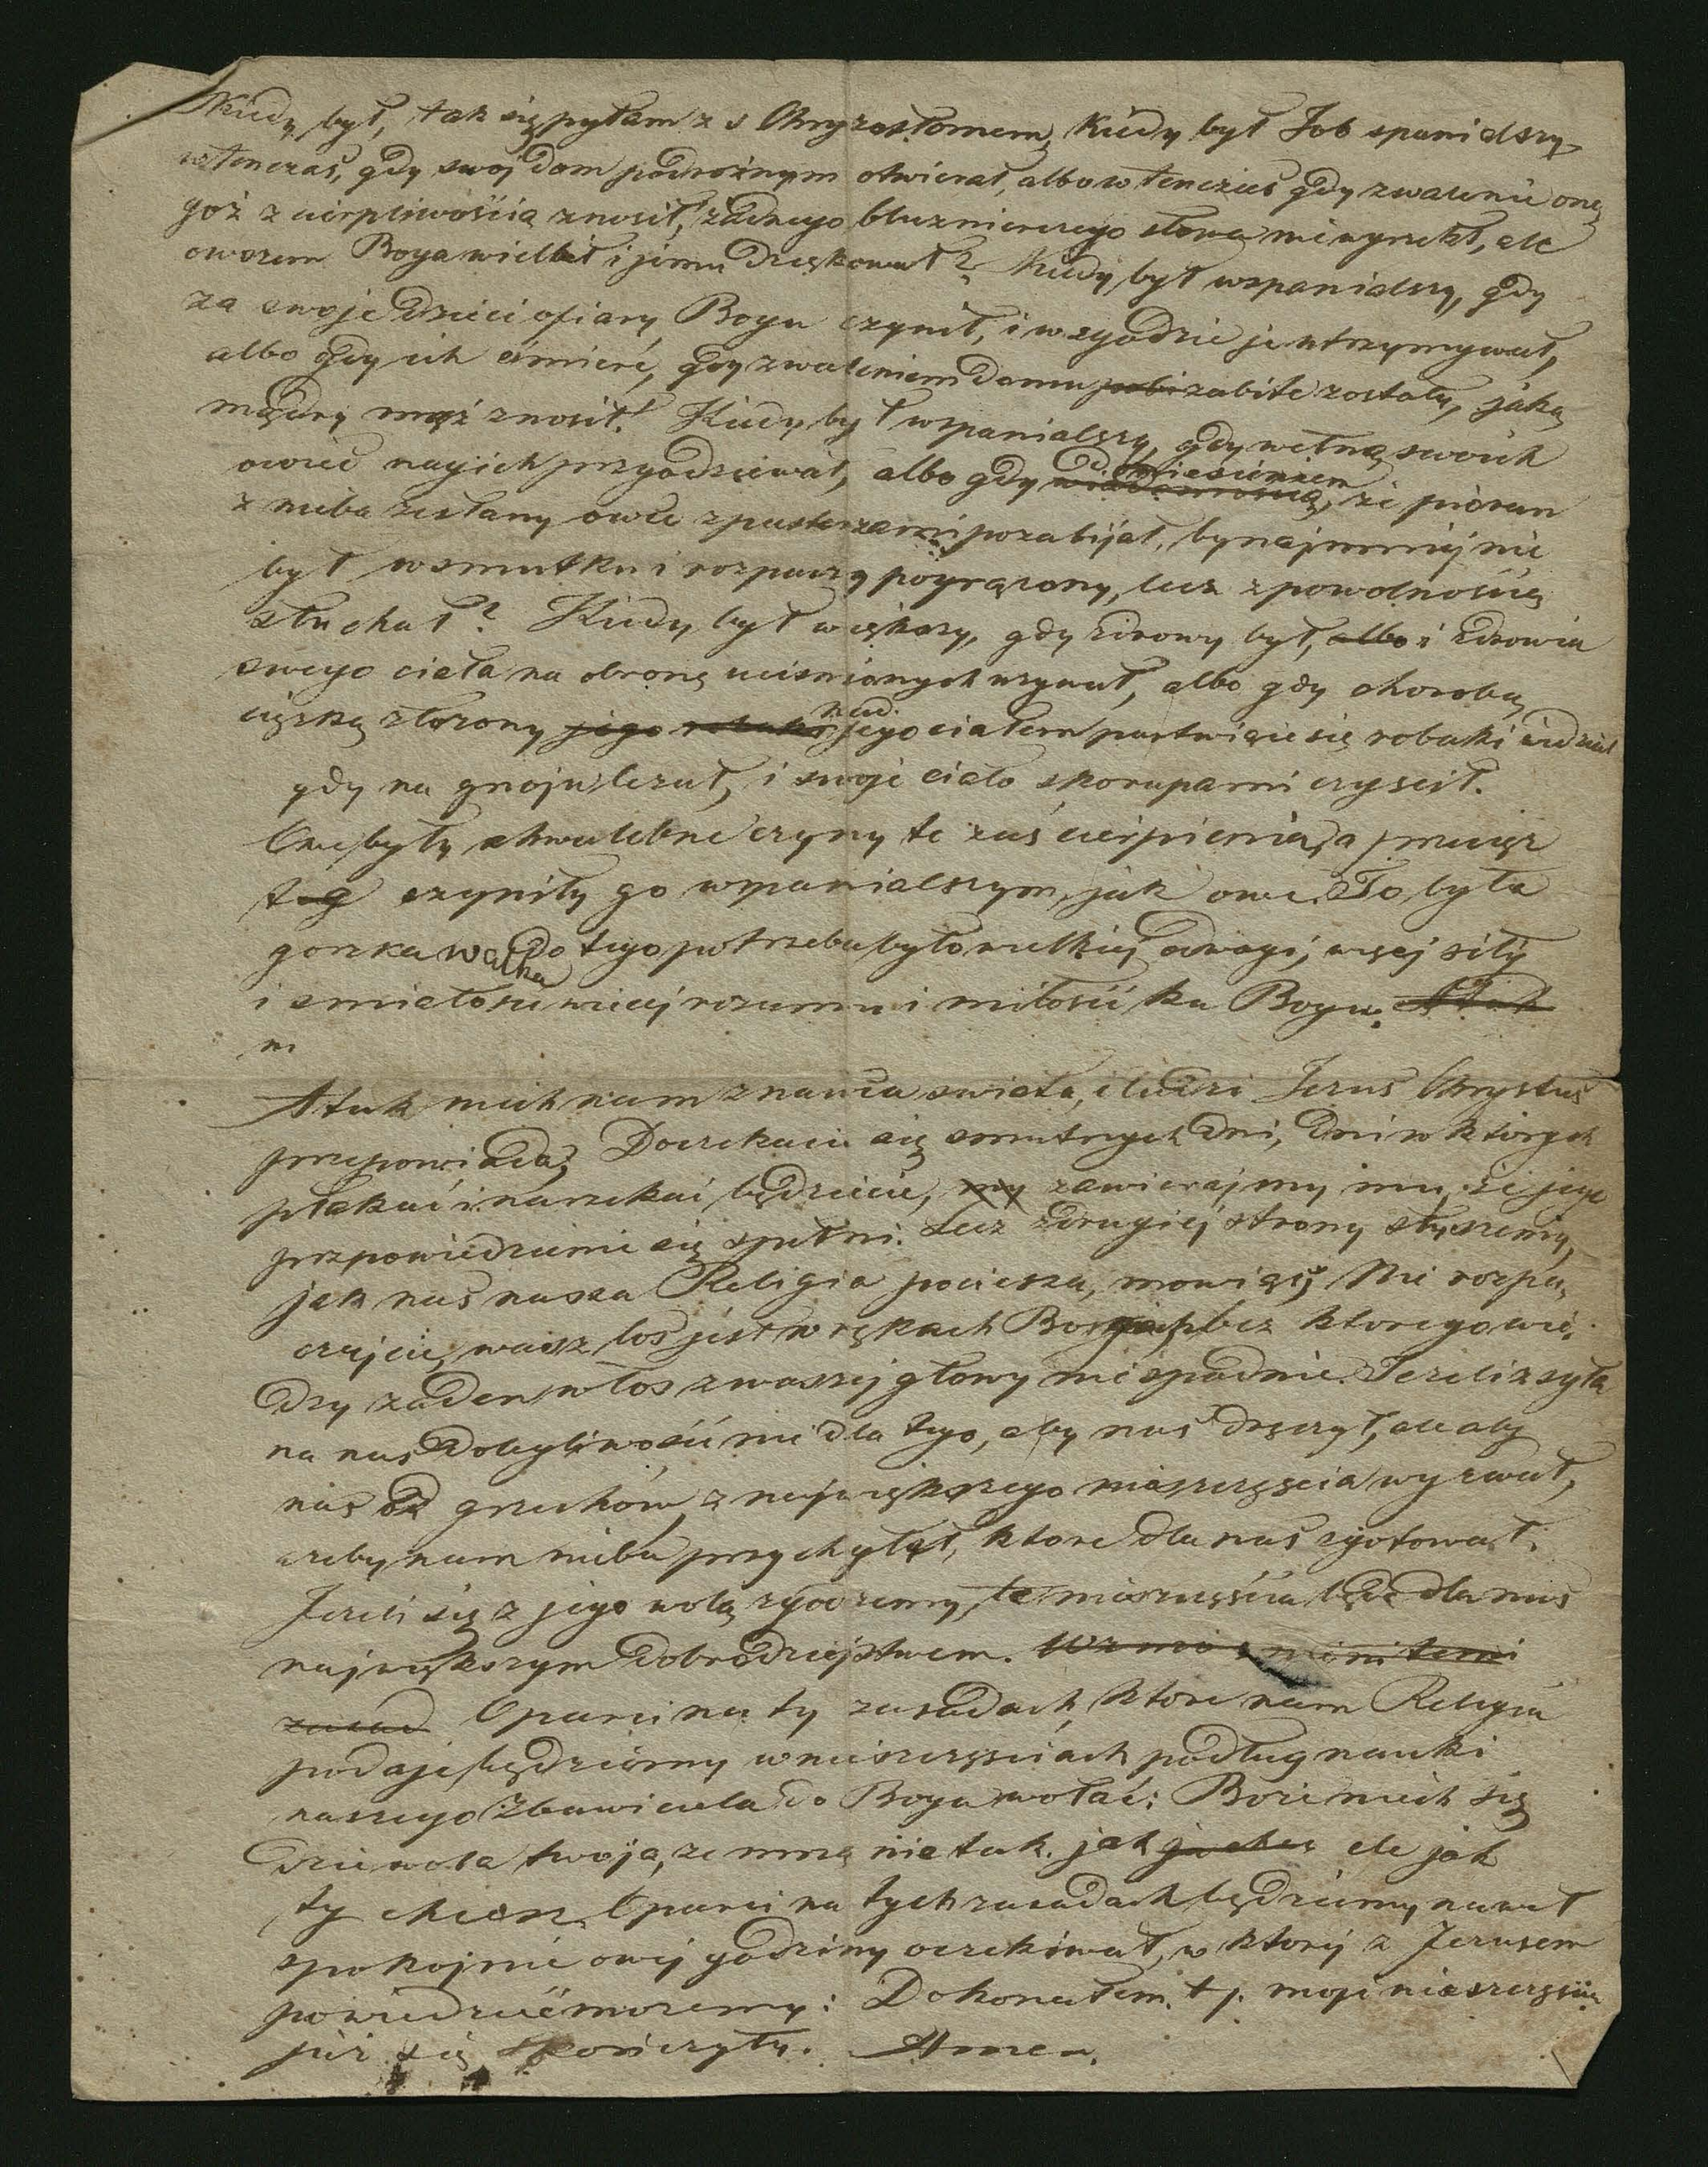 Kiedy był, tak się pytam z s Chryzostomem, Kiedy był Job spanialszy
wtenczas, gdy swój dom podrożnym otwierał, albo wtenczas gdy zwalenie one
goż z cierpliwością znosił, żadnego bluznierczego słowa niewyrzekł, ale
owszem Boga wielbił i jemu dziękował? Kiedy był wspanialszy, gdy
za swoje dzieci ofiary Bogu czynił, i w zgodzie je utrzymywał,
albo gdy ich śmierć, gdy zwaleniem domu pobi zabite zostały, jako
mądry mąż znosił! Kiedy był wspanialszy, gdy wełną swoich
owiec nagich przyodziewał, albo gdy wiadomością, że piorun
doniesieniem
z nieba zesłany owce z pasterzami pozabijał, bynajmniej nie
był w smutku i rozpaczy pogrążony, lecz z powolnością
słuchał? Kiedy był większy, gdy zdrowy był, albo i zdrowia
swego ciała na obronę uciśnionych używał, albo gdy chorobą
ciężką złożony jego robaki jego ciałem pastwiące się robaki widział
nad
gdy na gnoju leżał, i swoje ciało skorupami czyścił.
Owe były chwalebne czyny te zaś cierpienia, a przecięz
te g czyniły go wspanialszym, jak owe. To była
gorzka walka do tego potrzeba było wielkiej odwagi, więcej siły
i śmiałości więcej rozumu i miłości ku Bogu. A Tak
n
A tak niech nam znawca swiata, i ludzi Jezus Chrystus
przepowiada, Doczekacie się smutnych dni, dni w których
płakać i narzekać będziecie, my zawierajmy mu, że jego
przpowiedzenie się spełni. Lecz z drugiéj strony słyszemy,
jak nas nasza Religia pociesza, mowiąc; Nie rozpa,
czajcie, wasz los jest w rękach Boga, bez ktorego wie,
dzy żaden włos z waszej głowy nie spadnie. Jeżeli zsyła
na nas dolegliwości nie dla tego, aby nas dręczył, ale aby
nas od grzechów, z największego nieszczęścia wyrwał,
żeby nam nieba przychylał, ktore dla nas zgotował.
Jeżeli się z jego wolą zgodzemy, te nieszczęścia będą dla nas
największym dobrodziejstwem. Wzmo nieni temi
zasad Oparci na ty zasadach, ktore nam Religia
podaje, będziemy w nieszczęściach podług nauki
naszego Zbawiciela do Boga wołać: Boże niech się
dzieie wola twoja, ze mną nie tak. jak ja chcę ale jak
ty chcesz. Oparci na tych zasadach będziemy nawet
spokojnie owej godziny oczekiwał, w której z Jezusem
powiedzieć możemy: Dokonałem. t j. moje nieszczęścia
już się skończyły. Amen.